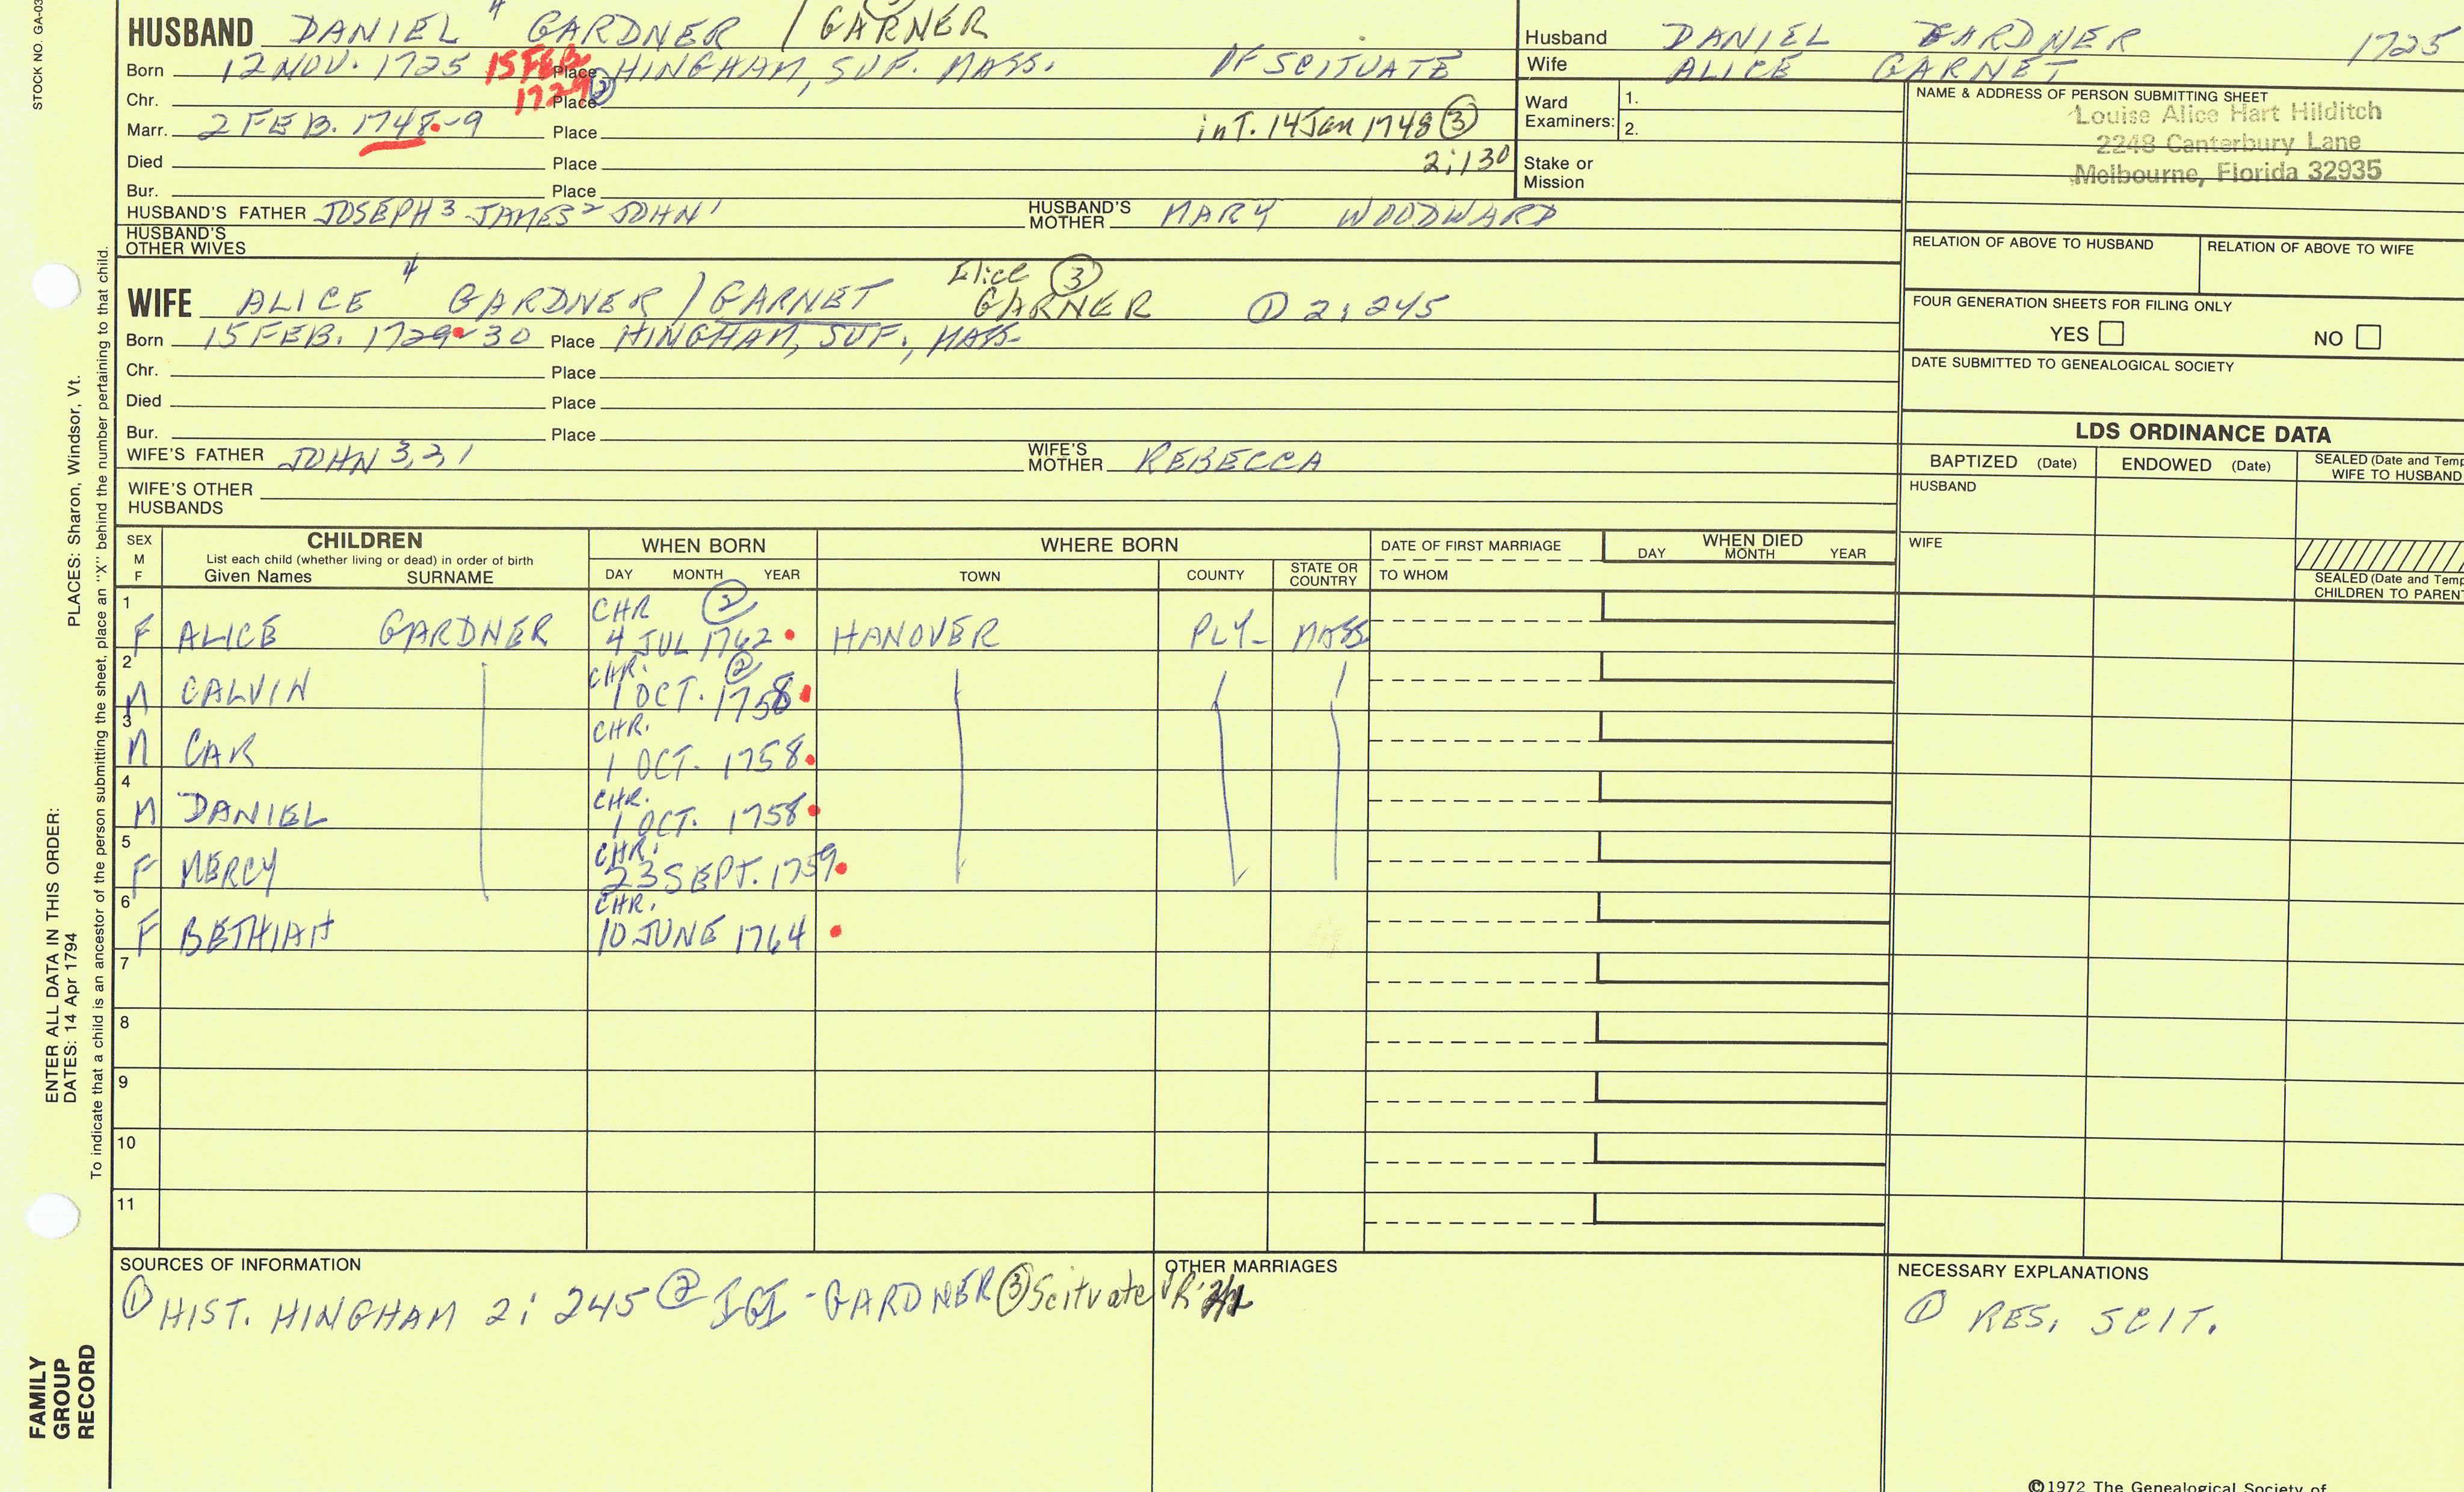 STOCK NO. GA-03
HUSBAND DANIEL 4 GARDNER / GARNER
Born 12 NOV. 1725 15 FEB 1729 ② Place HINGHAM, SUF. MASS. OF SCITUATE
Chr. Place
Marr. 2 FEB. 1748-9 Place inT. 14 Jan 1748 ③
Died Place 2:130
Bur. Place
HUSBAND'S FATHER JOSEPH 3 JAMES 2 JOHN 1 HUSBAND'S MOTHER MARY WOODWARD
HUSBAND'S OTHER WIVES
WIFE ALICE 4 GARDNER / GARNET Elice ③ GARNER ① 2:245
Born 15 FEB. 1729-30 Place HINGHAM, SUF., MASS
Chr. Place
Died Place
Bur. Place
WIFE'S FATHER JOHN 3,2,1 WIFE'S MOTHER REBECCA
WIFE'S OTHER HUSBANDS
Husband DANIEL GARDNER 1725
Wife ALICE GARNET
Ward Examiners: 1.
2.
Stake or Mission
NAME & ADDRESS OF PERSON SUBMITTING SHEET
Louise Alice Hart Hilditch
2248 Canterbury Lane
Melbourne, Florida 32935
RELATION OF ABOVE TO HUSBAND RELATION OF ABOVE TO WIFE
FOUR GENERATION SHEETS FOR FILING ONLY
YES NO
DATE SUBMITTED TO GENEALOGICAL SOCIETY
LDS ORDINANCE DATA
BAPTIZED (Date) ENDOWED (Date) SEALED (Date and Temp
WIFE TO HUSBAND
HUSBAND
WIFE
SEALED (Date and Temp
CHILDREN TO PARENT
SEX M F CHILDREN WHEN BORN WHERE BORN DATE OF FIRST MARRIAGE WHEN DIED
List each child (whether living or dead) in order of birth
Given Names SURNAME DAY MONTH YEAR TOWN COUNTY STATE OR COUNTRY TO WHOM DAY MONTH YEAR
1 CHR ②
F ALICE GARDNER 4 JUL 1762 HANOVER PLY- MASS
2 CHR. ②
M CALVIN 1 OCT. 1758
3 CHR.
M CAR 1 OCT. 1758
4 CHR.
M DANIEL 1 OCT. 1758
5 CHR.
F MERCY 23 SEPT. 1759
6 CHR.
F BETHIAH 10 JUNE 1764
7
8
9
10
11
SOURCES OF INFORMATION
① HIST. HINGHAM 2: 245 ② IGI - GARDNER ③ Scituate VR
OTHER MARRIAGES
NECESSARY EXPLANATIONS
① RES. SCIT.
©1972 The Genealogical Society of
PLACES: Sharon, Windsor, Vt.
To indicate that a child is an ancestor of the person submitting the sheet, place an "X" behind the number pertaining to that child.
ENTER ALL DATA IN THIS ORDER:
DATES: 14 Apr 1794
FAMILY
GROUP
RECORD